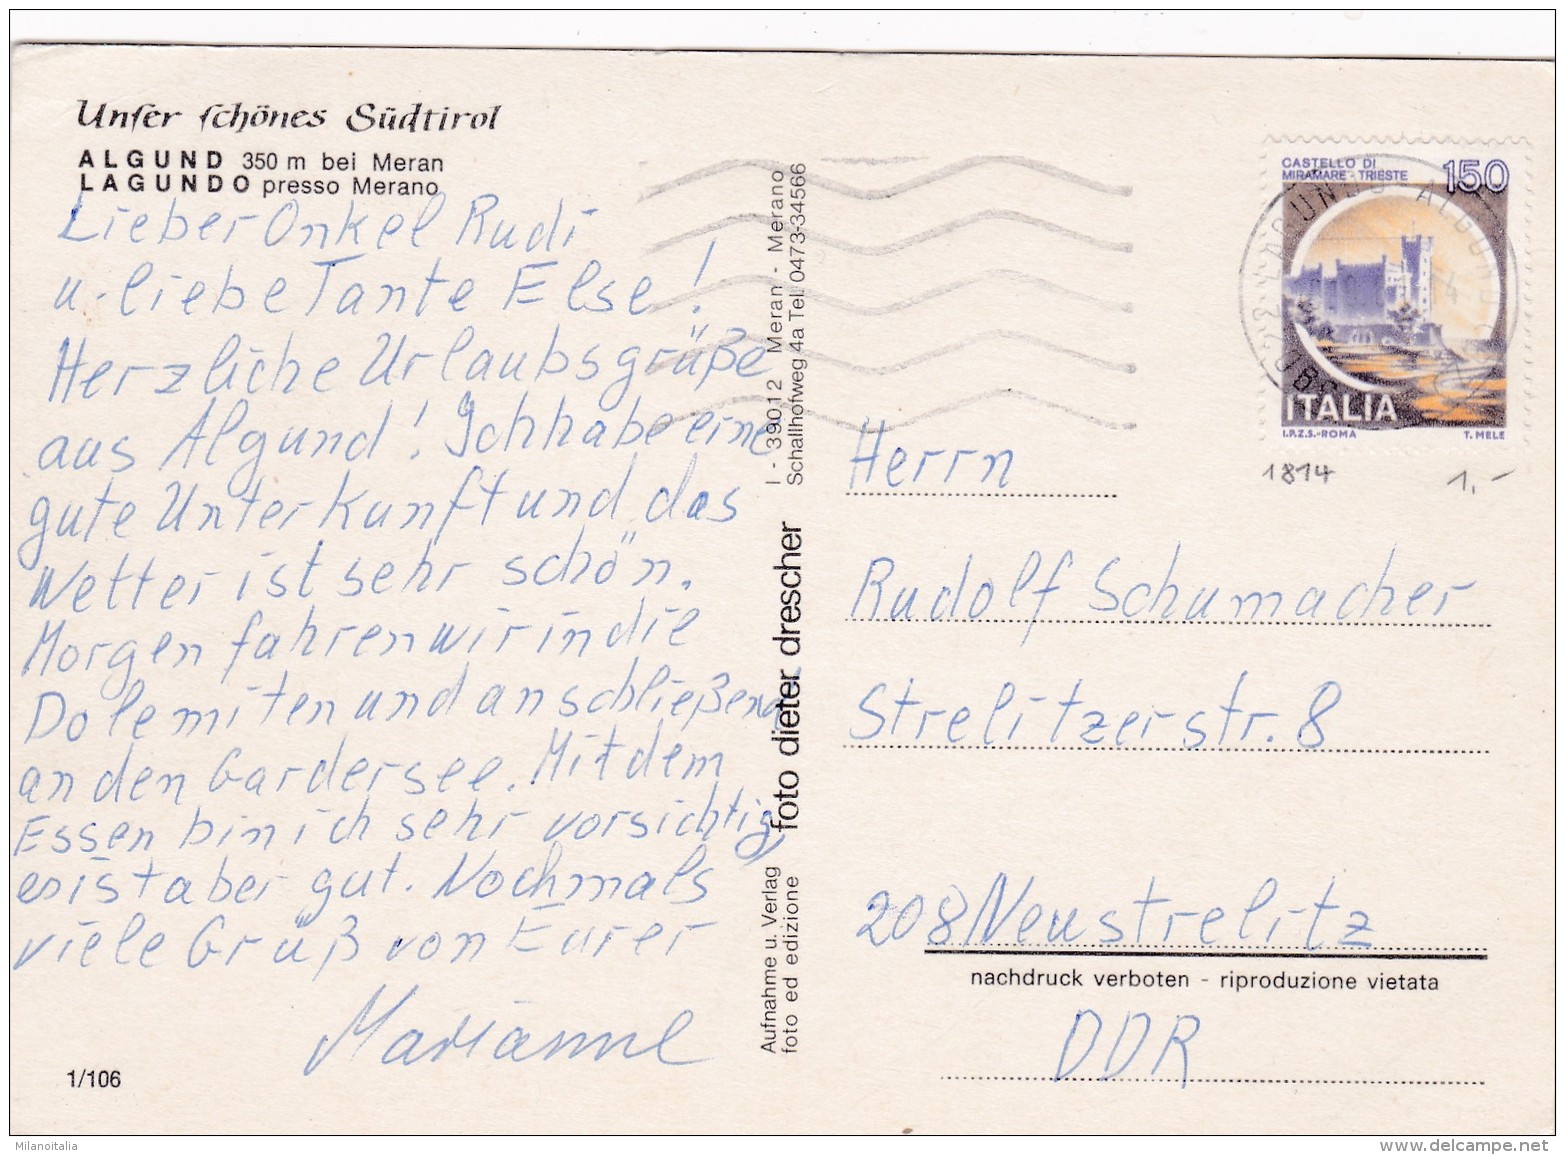 Unser schönes Südtirol
ALGUND 350 m bei Meran
LAGUNDO presso Merano
Lieber Onkel Rudi
u. liebe Tante Else!
Herzliche Urlaubsgrüße
aus Algund! Ich habe eine
gute Unterkunft und das
Wetter ist sehr schön.
Morgen fahren wir in die
Dolemiten und anschließend
an den Gardersee. Mit dem
Essen bin ich sehr vorsichtig,
es ist aber gut. Nochmals
viele Grüß von Eurer
Marianne
1/106
I - 39012 Meran - Merano
Schallhofweg 4a Tel. 0473-34566
foto dieter drescher
Aufnahme u. Verlag
foto ed edizione
CASTELLO DI
MIRAMARE - TRIESTE
150
ITALIA
I.P.Z.S.-ROMA T. MELE
LAGUNDO ALGUND
1814 1,-
Herrn
Rudolf Schumacher
Strelitzerstr. 8
208 Neustrelitz
nachdruck verboten - riproduzione vietata
DDR
Milanoitalia
www.delcampe.net